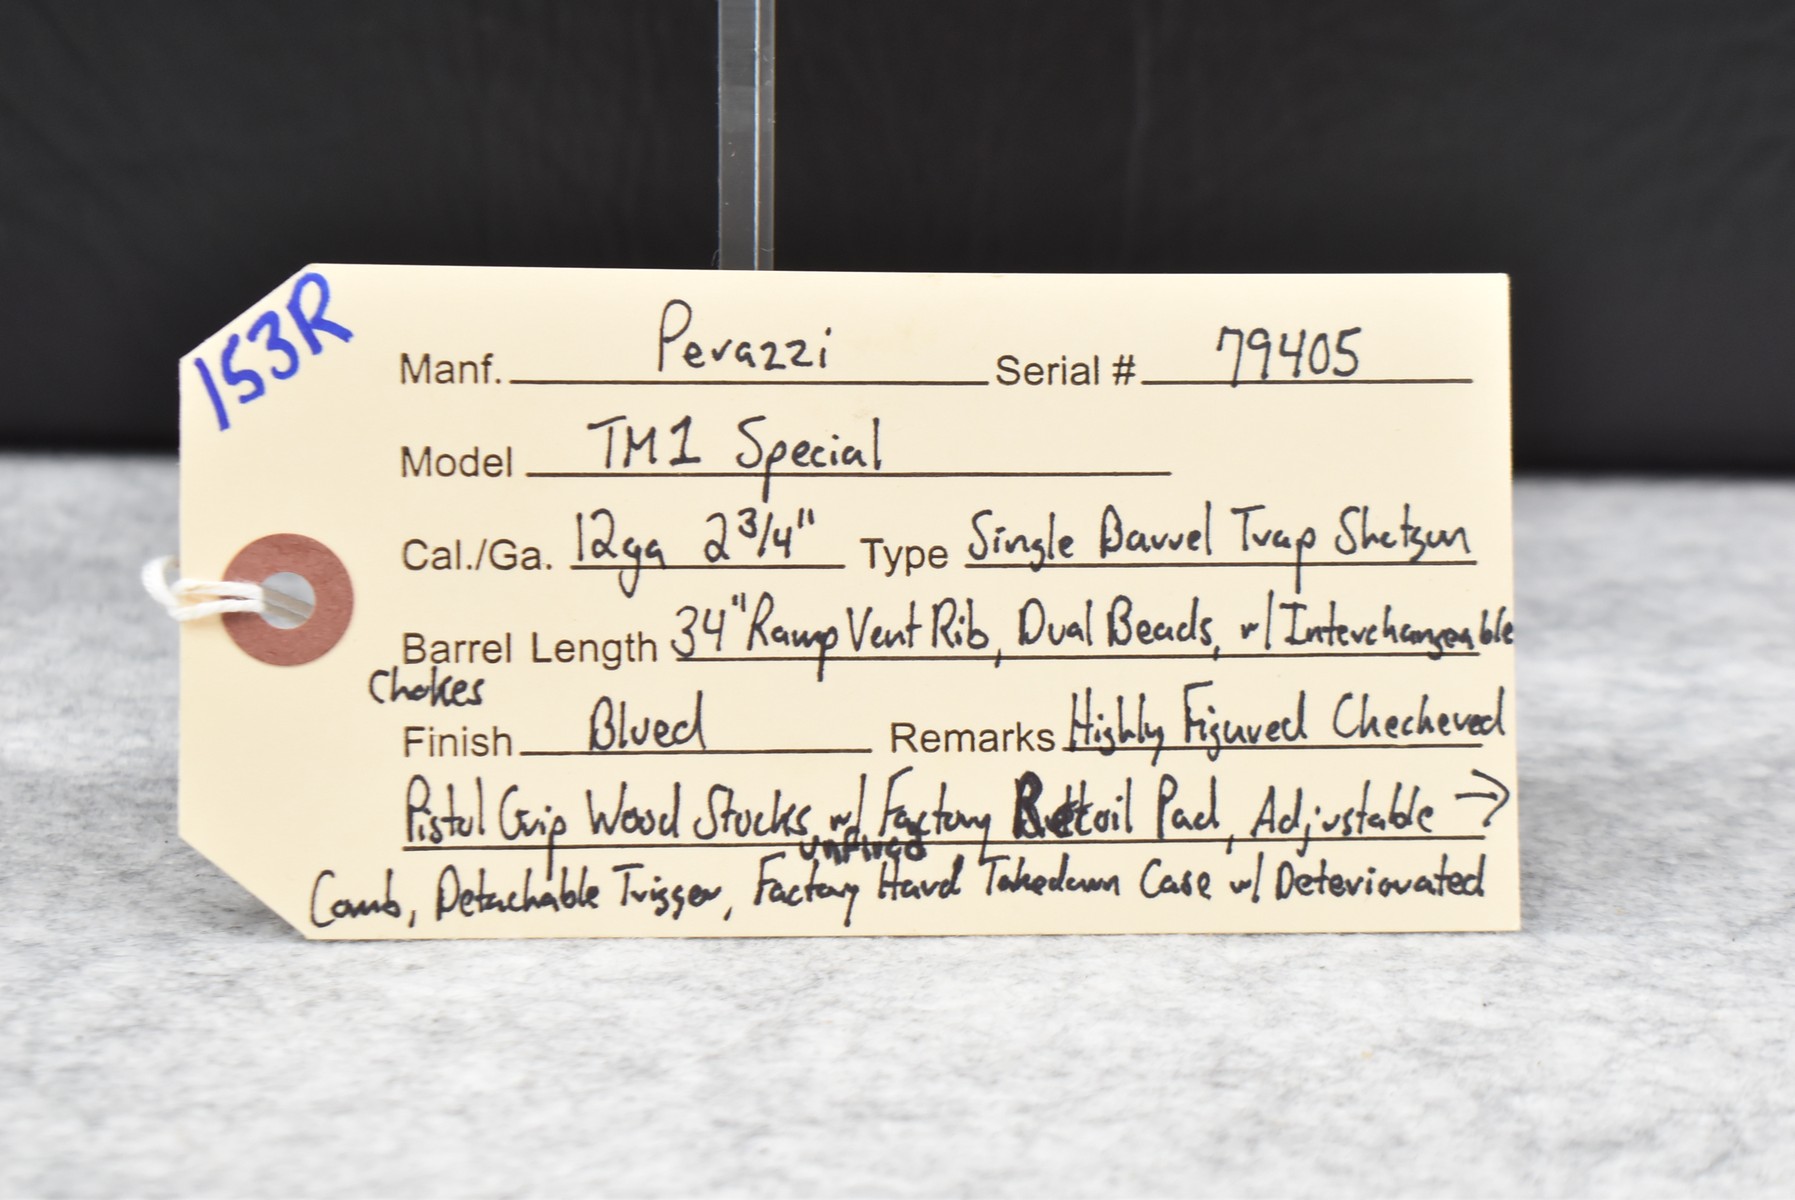 153R
Manf. Perazzi Serial # 79405
Model TM1 Special
Cal./Ga. 12ga 2 3/4" Type Single Barrel Trap Shotgun
Barrel Length 34" Ramp Vent Rib, Dual Beads, w/ Interchangeable
Chokes
Finish Blued Remarks Highly Figured Checkered
Pistol Grip Wood Stocks w/ Factory Recoil Pad, Adjustable →
unfired
Comb, Detachable Trigger, Factory Hard Takedown Case w/ Deteriorated